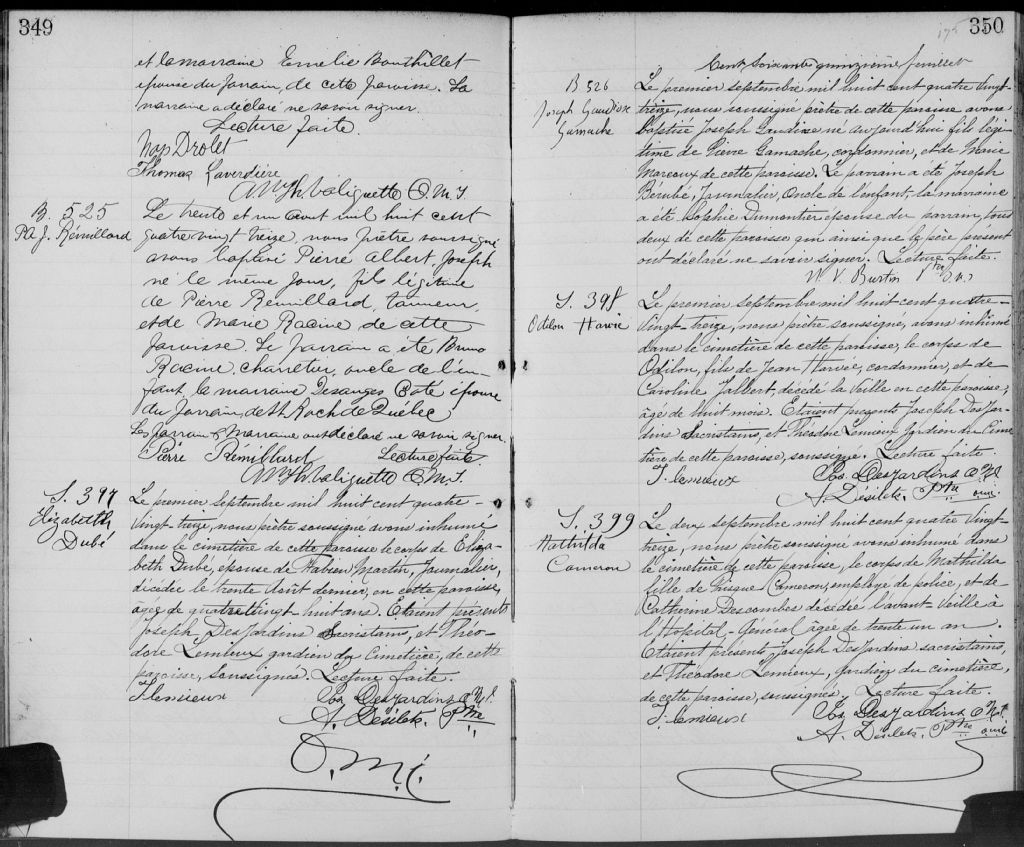 349
et la marraine Emelie Bouthillet
épouse du parrain, de cette paroisse. La
marraine a déclaré ne savoir signer.
Lecture faite.
Nap Drolet
Thomas Laverdière
Valiquette O. M. I.
B. 525
P. A. J. Rémillard
Le trente et un Aout mil huit cent
quatre vingt treize, nous prêtre soussigné
avons baptisé Pierre Albert Joseph
né le même jour, fils légitime
de Pierre Remillard, tanneur,
et de Marie Racine de cette
paroisse. Le parrain a été Bruno
Racine, charretier, oncle de l'en-
fant, la marraine Desanges Coté épouse
du parrain, de St Roch de Québec
Les parrain & marraine ont déclaré ne savoir signer.
Pierre Remillard Lecture faite.
Valiquette O. M. I.
S. 397
Elizabeth
Dubé
Le premier septembre mil huit cent quatre-
vingt-treize, nous prêtre soussigné avons inhumé
dans le cimetière de cette paroisse le corps de Eliza-
beth Dubé, épouse de Fabien Martin, Journalier,
décédée le trente Août dernier, en cette paroisse,
agée de quatre vingt huit ans. Etaient présents
Joseph DesJardins Sacristains, et Théo-
dore Lemieux gardien du Cimetière, de cette
paroisse, soussignés. Lecture faite.
T. Lemieux Jos Desjardins
A. Désilets. Ptre
O. M. I.
350
175
Cent soixante quinzième feuillet
B 526
Joseph Gaudiose
Gamache
Le premier septembre mil huit cent quatre vingt-
treize, nous soussigné prêtre de cette paroisse avons
baptisé Joseph Gaudiose né aujourd'hui fils légi-
time de Pierre Gamache, cordonnier, et de Marie
Marcoux de cette paroisse. Le parrain a été Joseph
Bérubé, Journalier, Oncle de l'enfant, la marraine
a été Sophie Dumontier épouse du parrain, tous
deux de cette paroisse qui ainsi que le père présent
ont déclaré ne savoir signer. Lecture faite.
W. V. Burtin Ptre
S. 398
Odilon Harvie
Le premier septembre mil huit cent quatre-
vingt-treize, nous prêtre soussigné, avons inhumé
dans le cimetière de cette paroisse, le corps de
Odilon, fils de Jean Harvée, cordonnier, et de
Caroline Jalbert, décédé la veille en cette paroisse,
agé de huit mois. Etaient présents Joseph DesJar-
dins Sacristains, et Théodore Lemieux gardien du Cime-
tière de cette paroisse, soussigné. Lecture faite.
T. Lemieux Jos Desjardins
A. Désilets, Ptre omi.
S. 399
Mathilda
Cameron
Le deux septembre mil huit cent quatre vingt-
treize, nous prêtre soussigné avons inhumé dans
le cimetière de cette paroisse, le corps de Mathilda
fille de Cameron, employé de police, et de
Catherine Descombes décédée l'avant-veille à
l'Hopital-Général agée de trente un an.
Etaient présents, Joseph DesJardins sacristains,
et Théodore Lemieux, gardien du cimetière,
de cette paroisse, soussignés. Lecture faite.
T. Lemieux Jos Desjardins
A. Désilets, Ptre omi